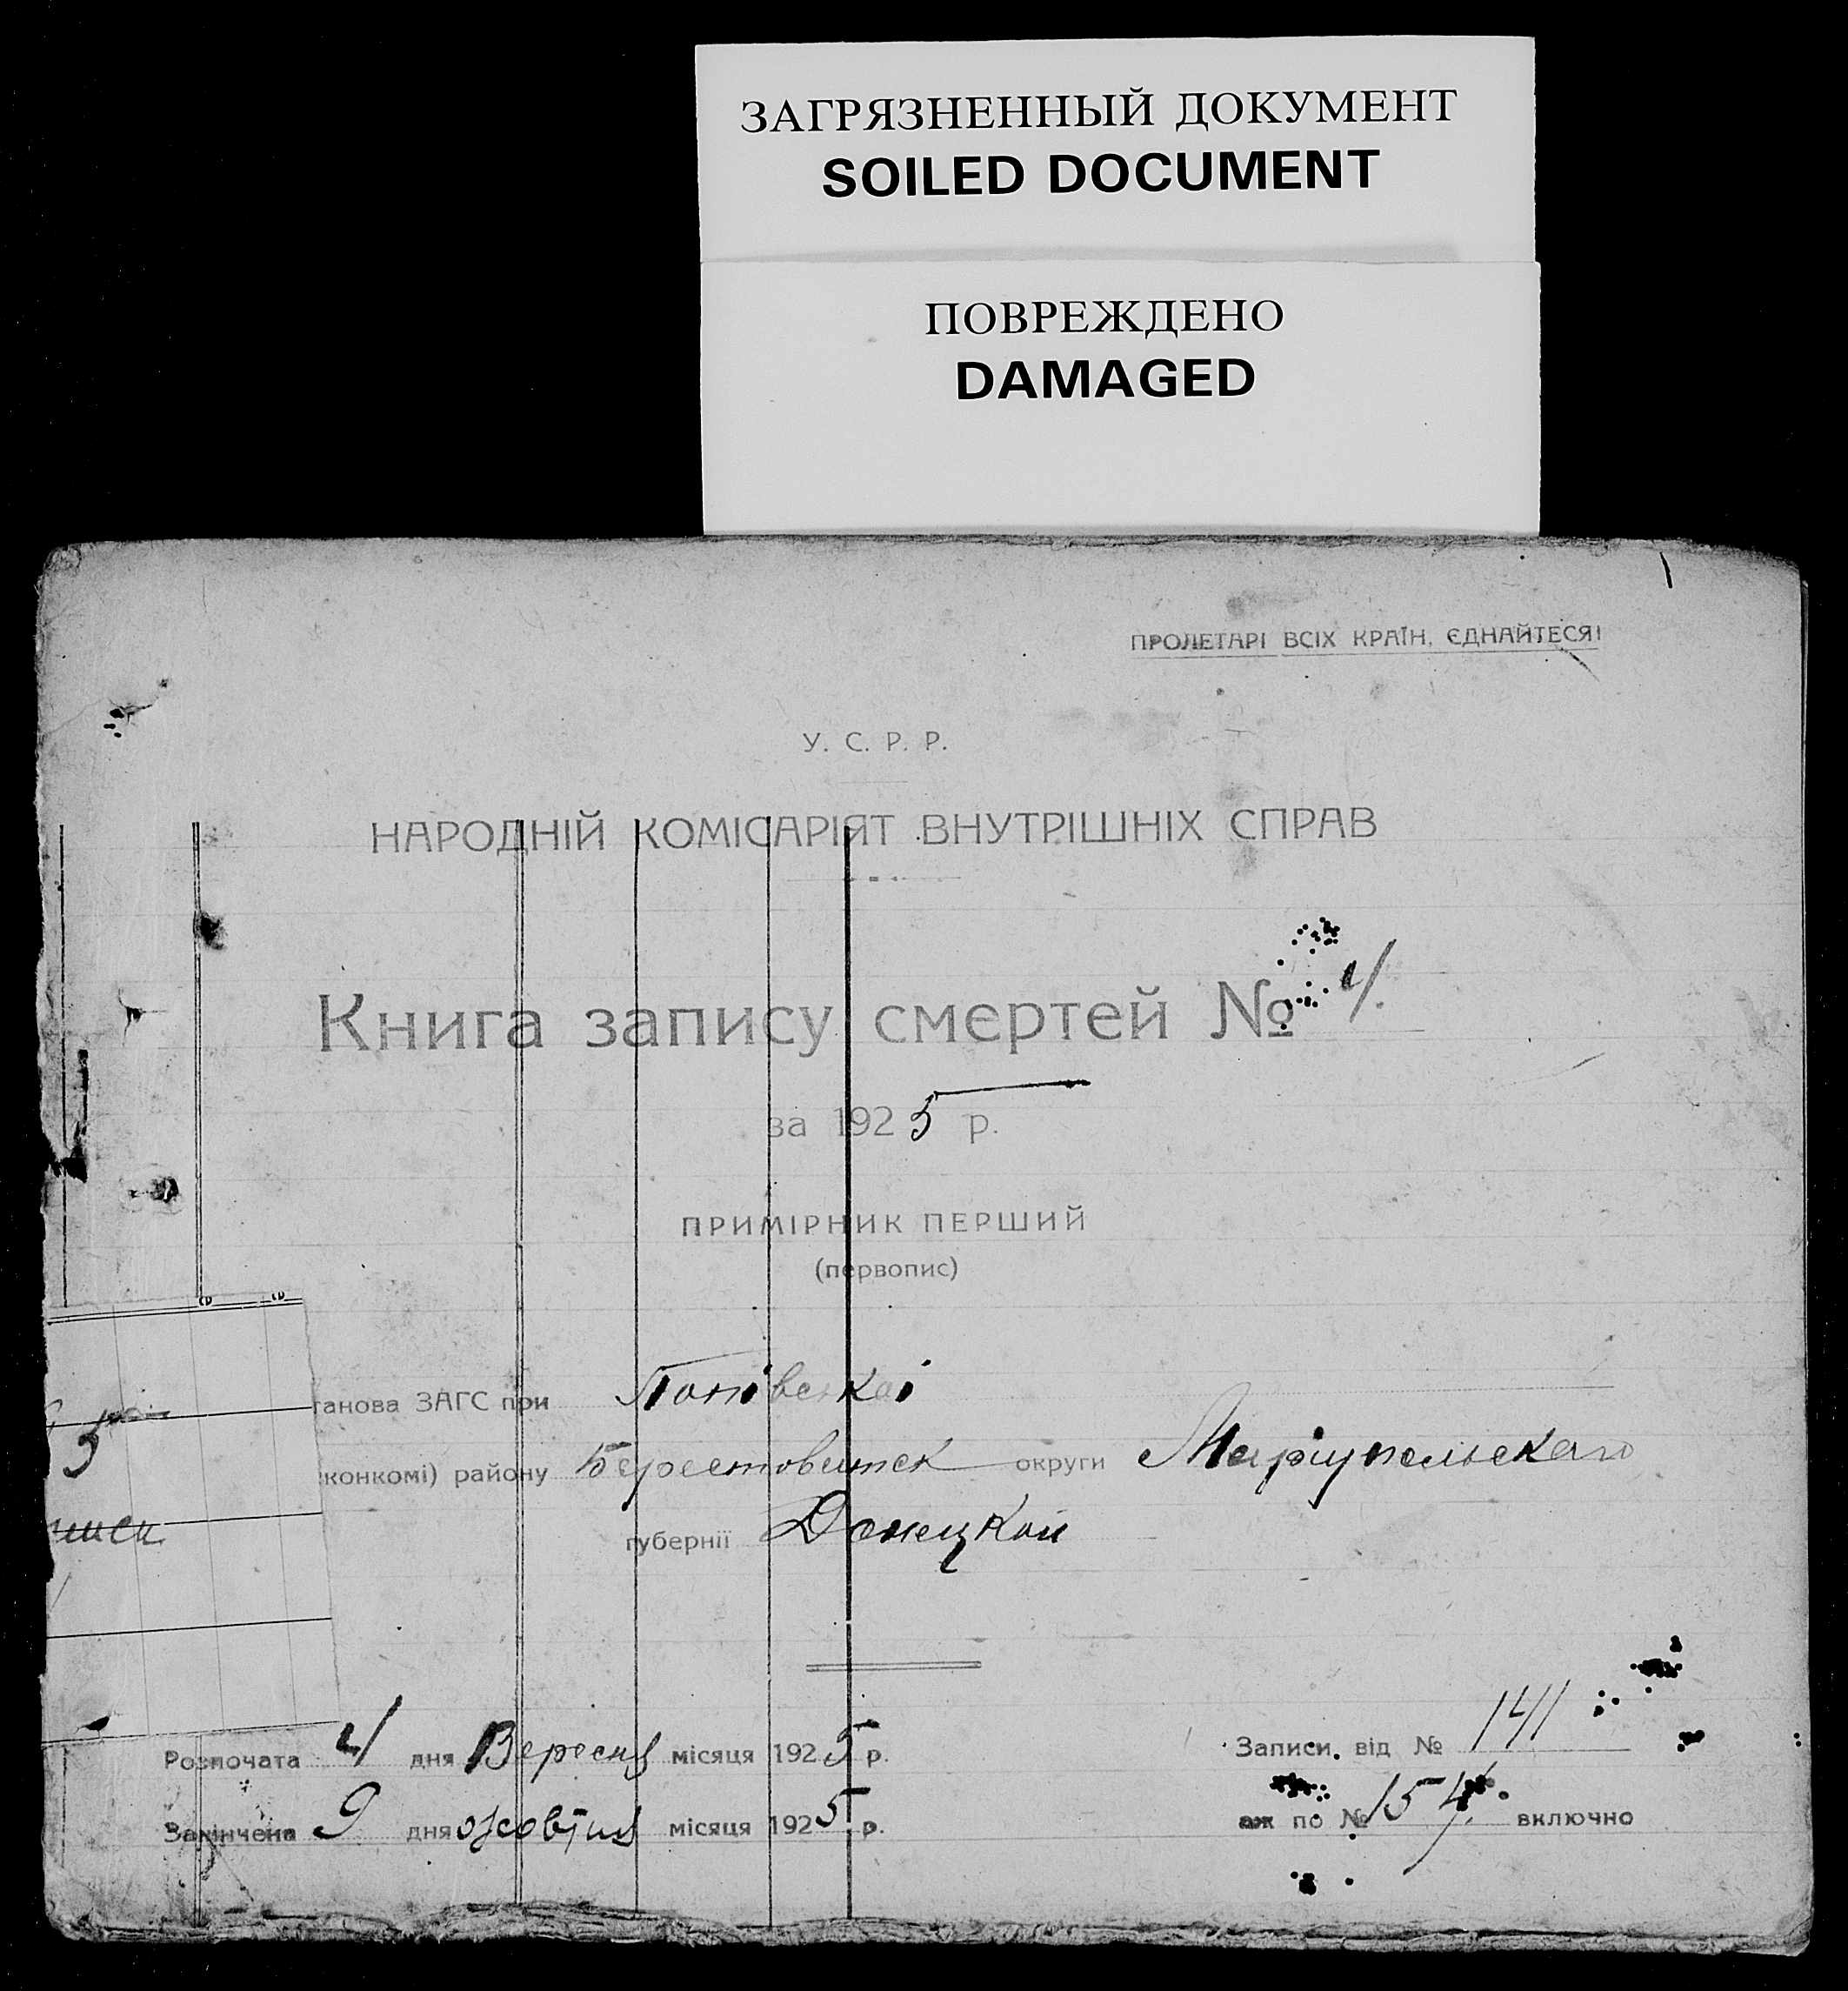 ЗАГРЯЗНЕННЫЙ ДОКУМЕНТ
SOILED DOCUMENT
ПОВРЕЖДЕНО
DAMAGED
ПРОЛЕТАРІ ВСІХ КРАЇН, ЄДНАЙТЕСЯ!
У. С. Р. Р.
НАРОДНІЙ КОМІСАРІЯТ ВНУТРІШНІХ СПРАВ
Книга запису смертей № 4.
за 1925 р.
ПРИМІРНИК ПЕРШИЙ
(первопис)
танова ЗАГС при Попівскаі
5
конкомі) району округи Маріупольскаго
губернії Донецкой
Розпочата 4 дня Вересня місяця 1925 р.
Записи від № 141
Закінчена 9 дня жовтня місяця 1925 р.
аж по № 154 включно